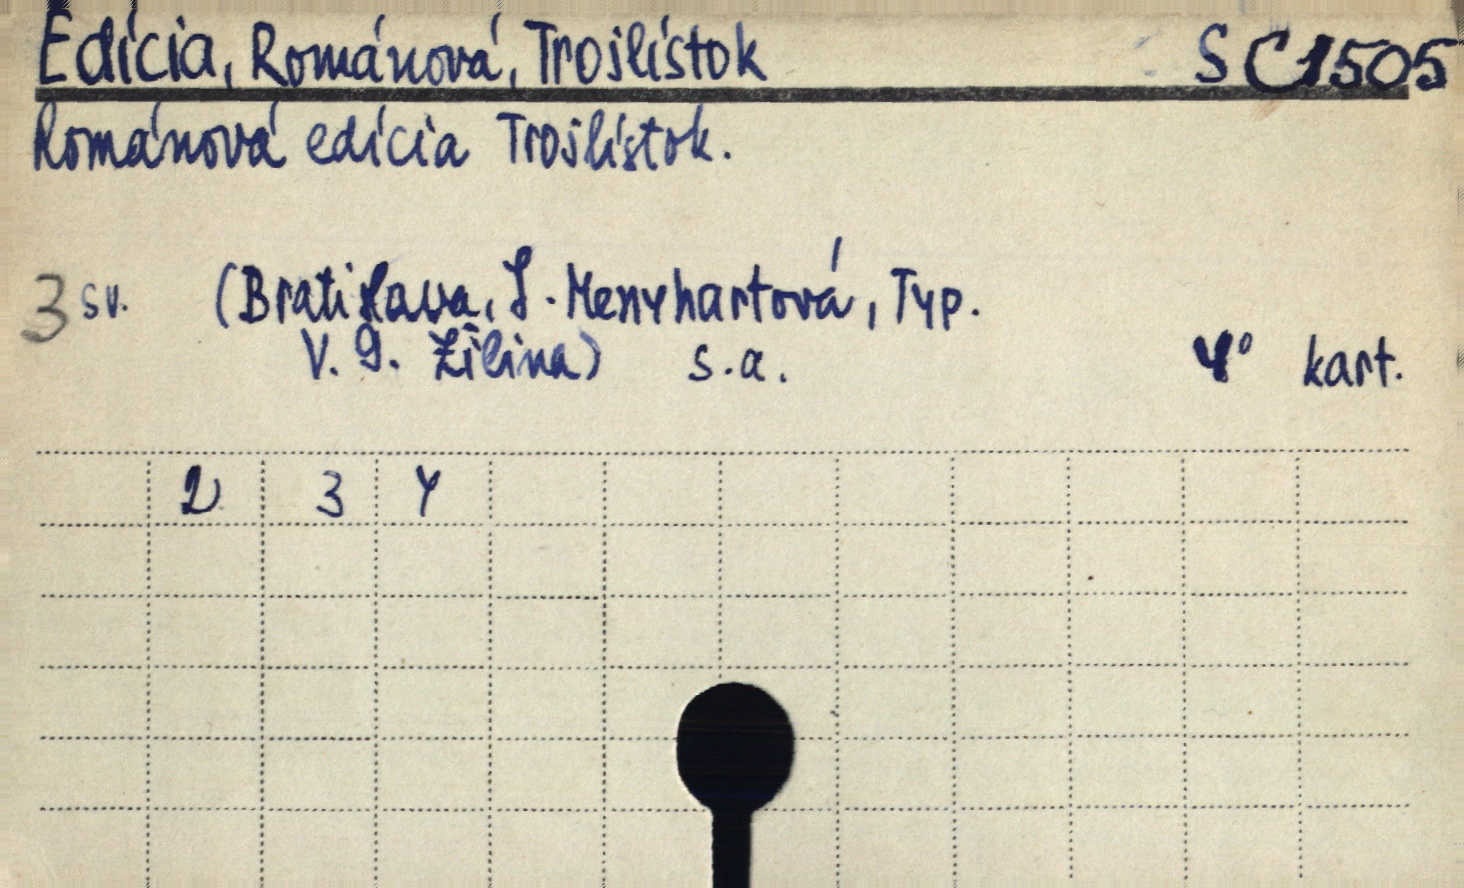 Edícia, Románová, Trojlístok S C1505
Románová edícia Trojlístok.
3 sv. (Bratislava, J. Menyhartová, Typ.
V. g. Žilina) s.a. 4° kart.
2 3 4